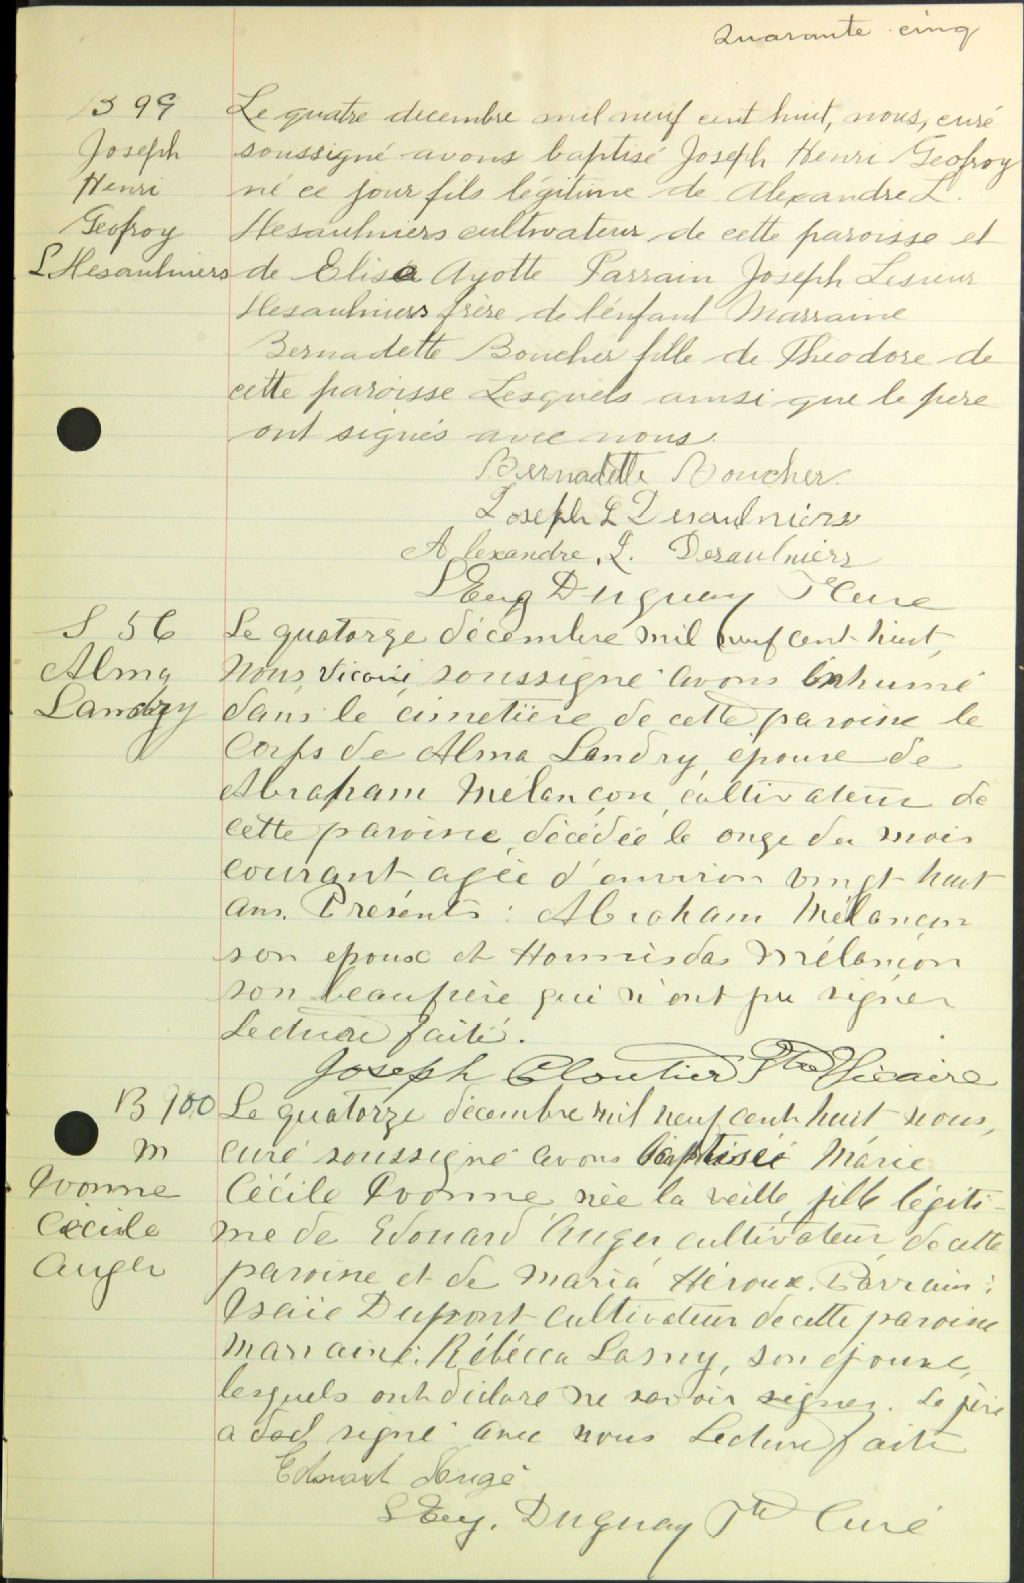 Quarante cinq
B 99
Joseph
Henri
Geofroy
L Hesaulniers
Le quatre decembre mil neuf cent huit, nous, curé
soussigné avons baptisé Joseph Henri Geofroy
né ce jour fils légitime de Alexandre L.
Hesaulniers cultivateur de cette paroisse et
de Elisa Ayotte Parrain Joseph Lesieur
Hesaulniers frère de l'enfant Marraine
Bernadette Boucher fille de Theodore de
cette paroisse Lesquels ainsi que le pere
ont signés avec nous.
Bernadette Boucher.
Joseph L Desaulniers
Alexandre. L. Desaulniers
Eug Duguay Ptre Cure
S 56
Alma
Landry
Le quatorze décembre mil neuf cent huit,
Nous, vicaire, soussigné avons inhumé
dans le cimetière de cette paroisse le
Corps de Alma Landry, epouse de
Abraham Mélançon, cultivateur de
cette paroisse, décédée le onze du mois
courant agée d'environ vingt huit
ans. Présents : Abraham Mélançon
son epoux et Hormisdas Mélançon
son beaufrère qui n'ont pu signer
Lecture faite.
Joseph Cloutier Ptre Vicaire
B 100
M
Yvonne
Cécile
Auger
Le quatorze décembre mil neuf cent huit nous,
curé soussigné avons baptisée Marie
Cécile Yvonne née la veille, fille légiti-
me de Edouard Auger, cultivateur de cette
paroisse et de Maria Héroux. Parrain :
Isaïe Dupont cultivateur de cette paroisse
Marraine : Rébécca Lasny, son epouse,
lesquels ont déclaré ne savoir signer. Le père
a signé avec nous Lecture faite
Edouard Augé
Eug. Duguay Ptre Curé